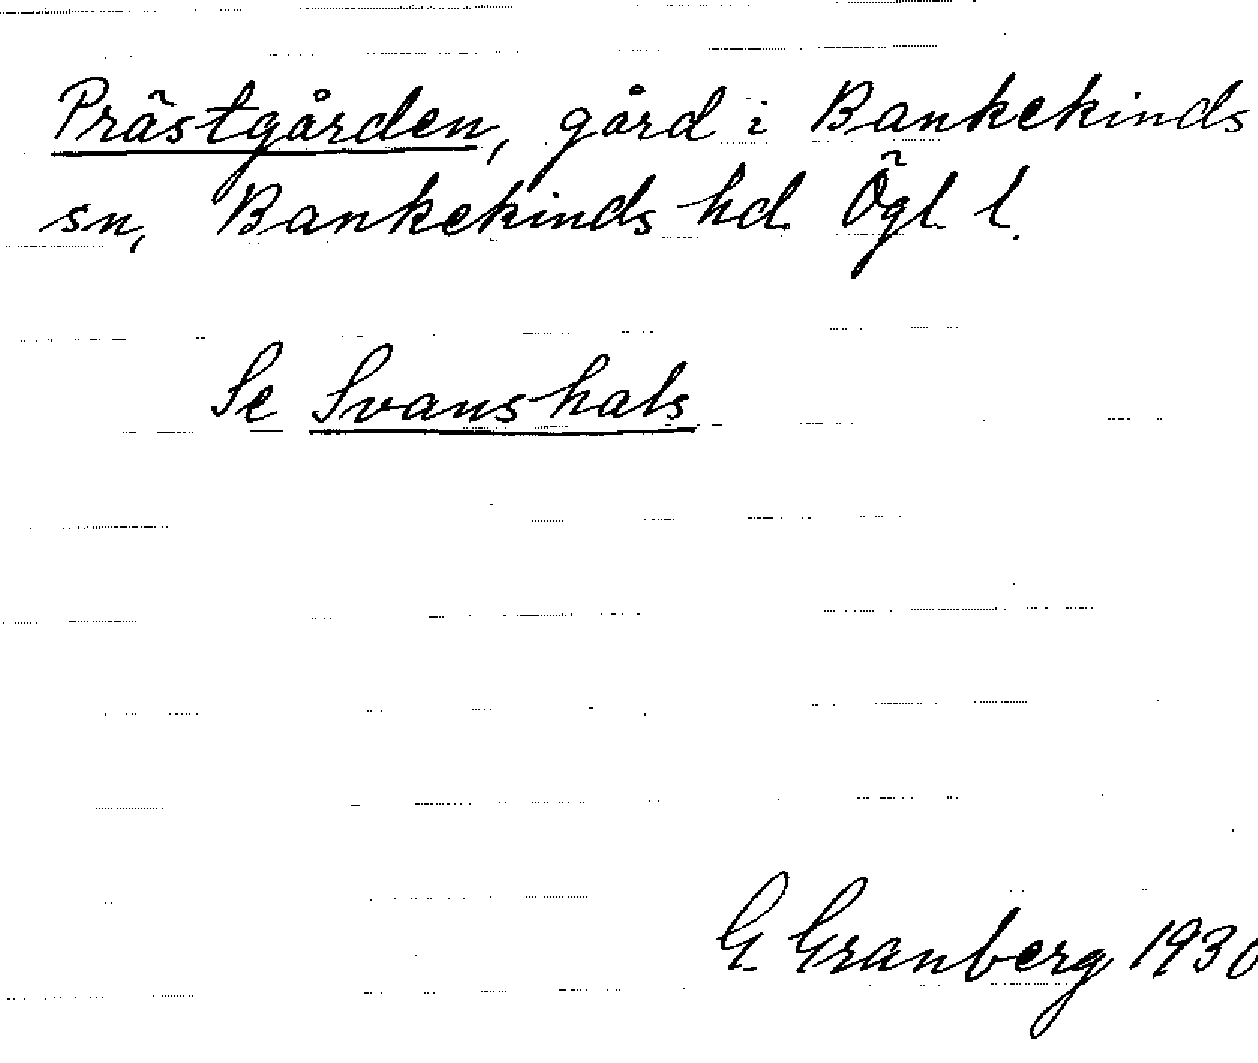 Prästgården, gård i Bankekinds
sn, Bankekinds hd Ögl l.
Se Svanshals
G. Granberg 1930